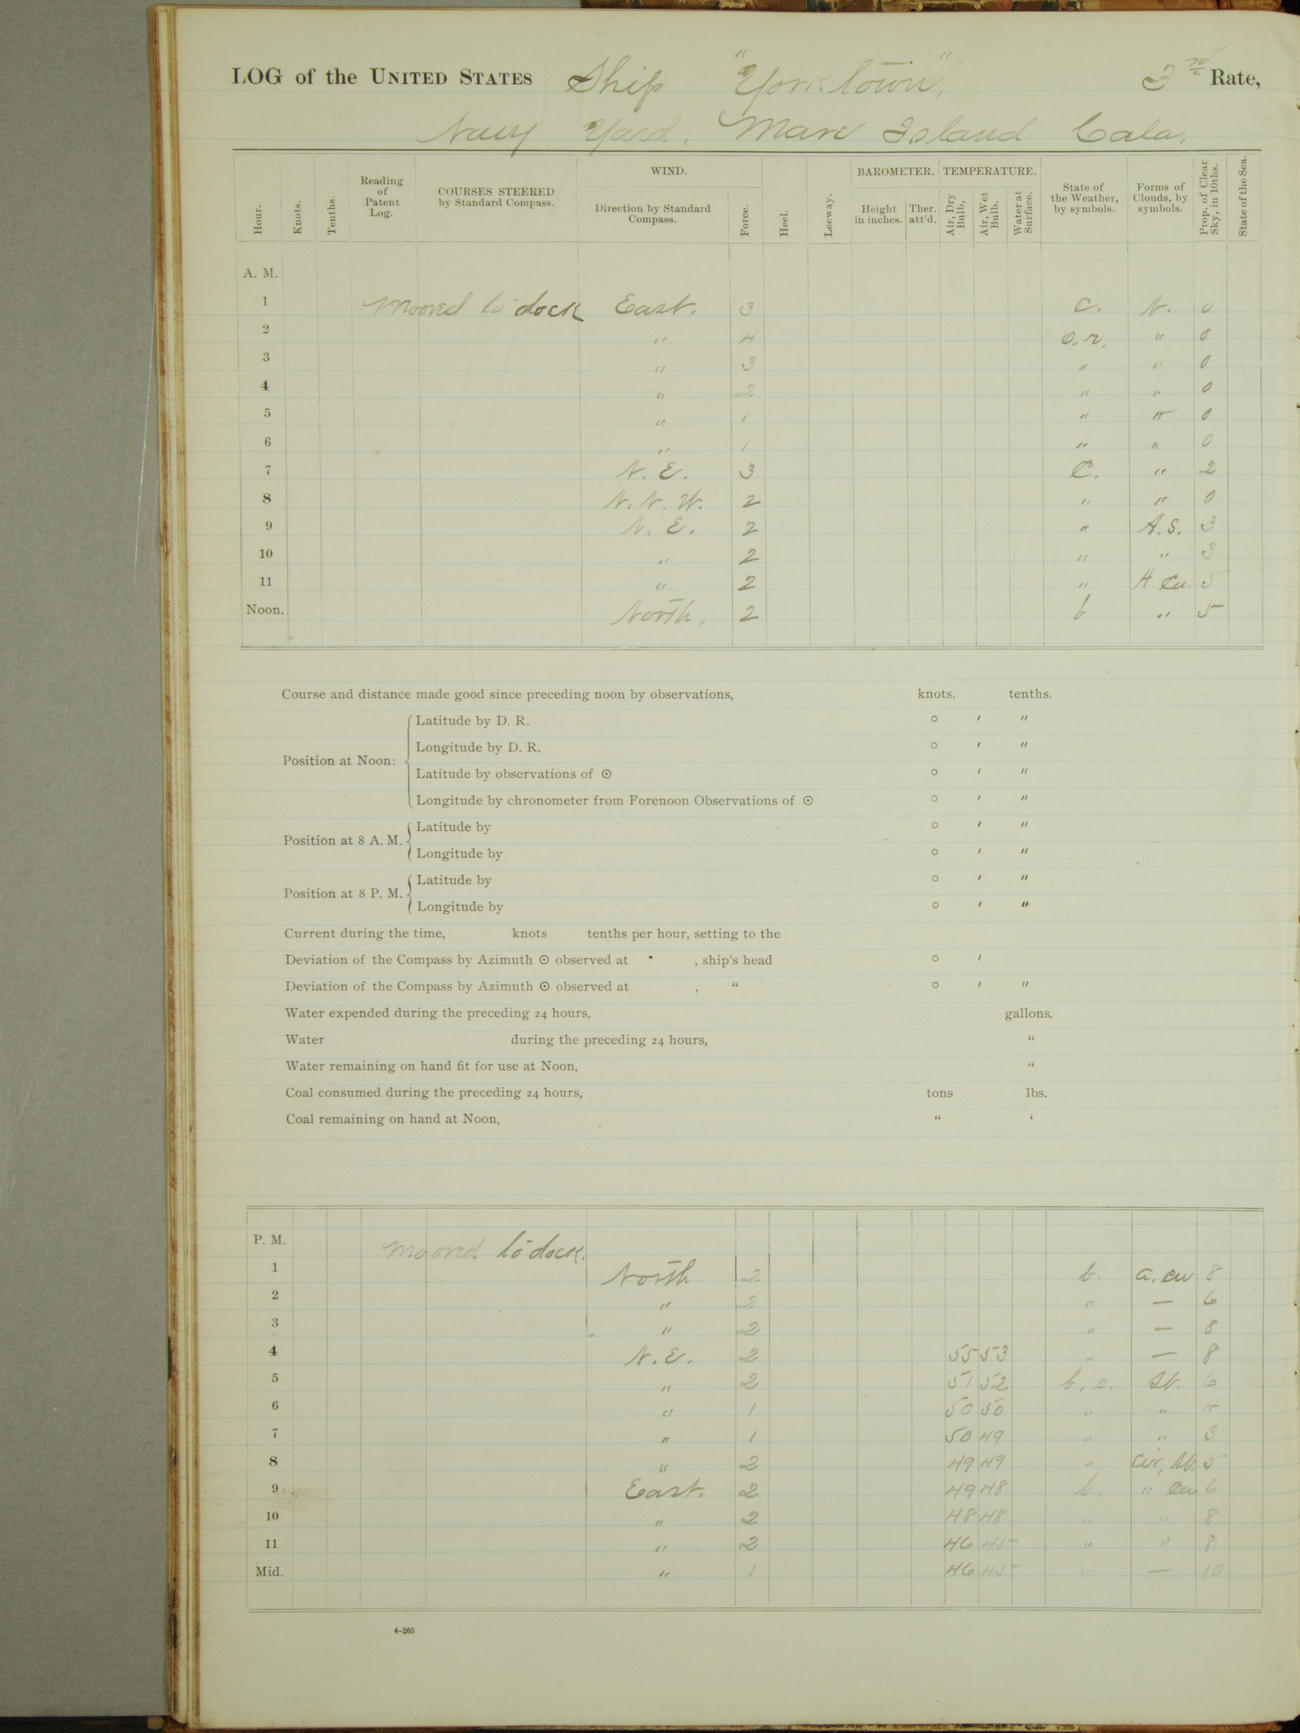 LOG of the UNITED STATES Ship "Yorktown", 3rd Rate,
Navy Yard, Mare Island Cala.
Hour. Knots. Tenths. Reading of Patent Log. COURSES STEERED by Standard Compass. WIND. Direction by Standard Compass. Force. Heel. Leeway. BAROMETER. Height in inches. Ther. att'd. TEMPERATURE. Air, Dry Bulb, Air, Wet Bulb. Water at Surface. State of the Weather, by symbols. Forms of Clouds, by symbols. Prop. of Clear Sky, in 10ths. State of the Sea.
A. M.
1 Moored to dock East. 3 C. N. 0
2 " 4 O.r. " 0
3 " 3 " " 0
4 " 2 " " 0
5 " 1 " " 0
6 " 1 " " 0
7 N. E. 3 C. " 2
8 N. N. W. 2 " " 0
9 N. E. 2 " A.S. 3
10 " 2 " " 3
11 " 2 " A Cu. 5
Noon. North, 2 b " 5
Course and distance made good since preceding noon by observations, knots. tenths.
Position at Noon:
Latitude by D. R. ° ′ ″
Longitude by D. R. ° ′ ″
Latitude by observations of ⊙ ° ′ ″
Longitude by chronometer from Forenoon Observations of ⊙ ° ′ ″
Position at 8 A. M.
Latitude by ° ′ ″
Longitude by ° ′ ″
Position at 8 P. M.
Latitude by ° ′ ″
Longitude by ° ′ ″
Current during the time, knots tenths per hour, setting to the
Deviation of the Compass by Azimuth ⊙ observed at , ship's head ° ′
Deviation of the Compass by Azimuth ⊙ observed at , " ° ′ ″
Water expended during the preceding 24 hours, gallons.
Water during the preceding 24 hours, "
Water remaining on hand fit for use at Noon, "
Coal consumed during the preceding 24 hours, tons lbs.
Coal remaining on hand at Noon, " '
P. M. Moored to dock.
1 North 2 b. a. cu 8
2 " 2 " — 6
3 " 2 " — 8
4 N.E. 2 55 53 " — 8
5 " 2 51 52 b. c. St. 6
6 " 1 50 50 " " 4
7 " 1 50 49 " " 3
8 " 2 49 49 " Cir, St. 5
9 East. 2 49 48 b. " Cu 6
10 " 2 48 48 " " 8
11 " 2 46 45 " " 8
Mid. " 1 46 45 " — 10
4-265